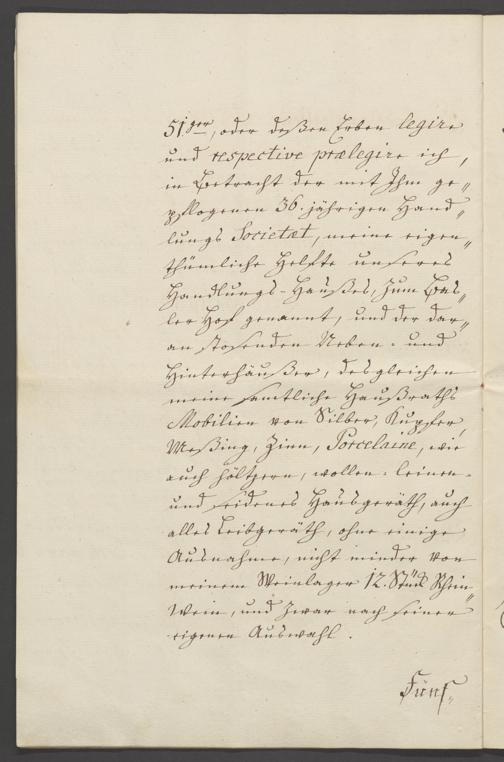 51.ger, oder deßen Erben legire
und respective prælegire ich,
in Betracht der mit Ihm ge„
pflogenen 36. jährigen Hand„
lungs Societæt, meine eigen„
thümliche Helfte unseres
Handlungs-Haußes, zum Bas„
ler Hof genannt, und der dar„
an stosenden Neben- und
Hinterhäußer, desgleichen
meine samtliche Haußraths
Mobilien von Silber, Kupfer,
Meßing, Zinn, Porcelaine, wie
auch höltzern, wollen- leinen-
und seidenes Hausgeräth, auch
alles Leibgeräth, ohne einige
Ausnahme, nicht minder von
meinem Weinlager 12. Stück Rhein„
Wein, und zwar nach seiner
eigenen Auswahl.
Fünf„